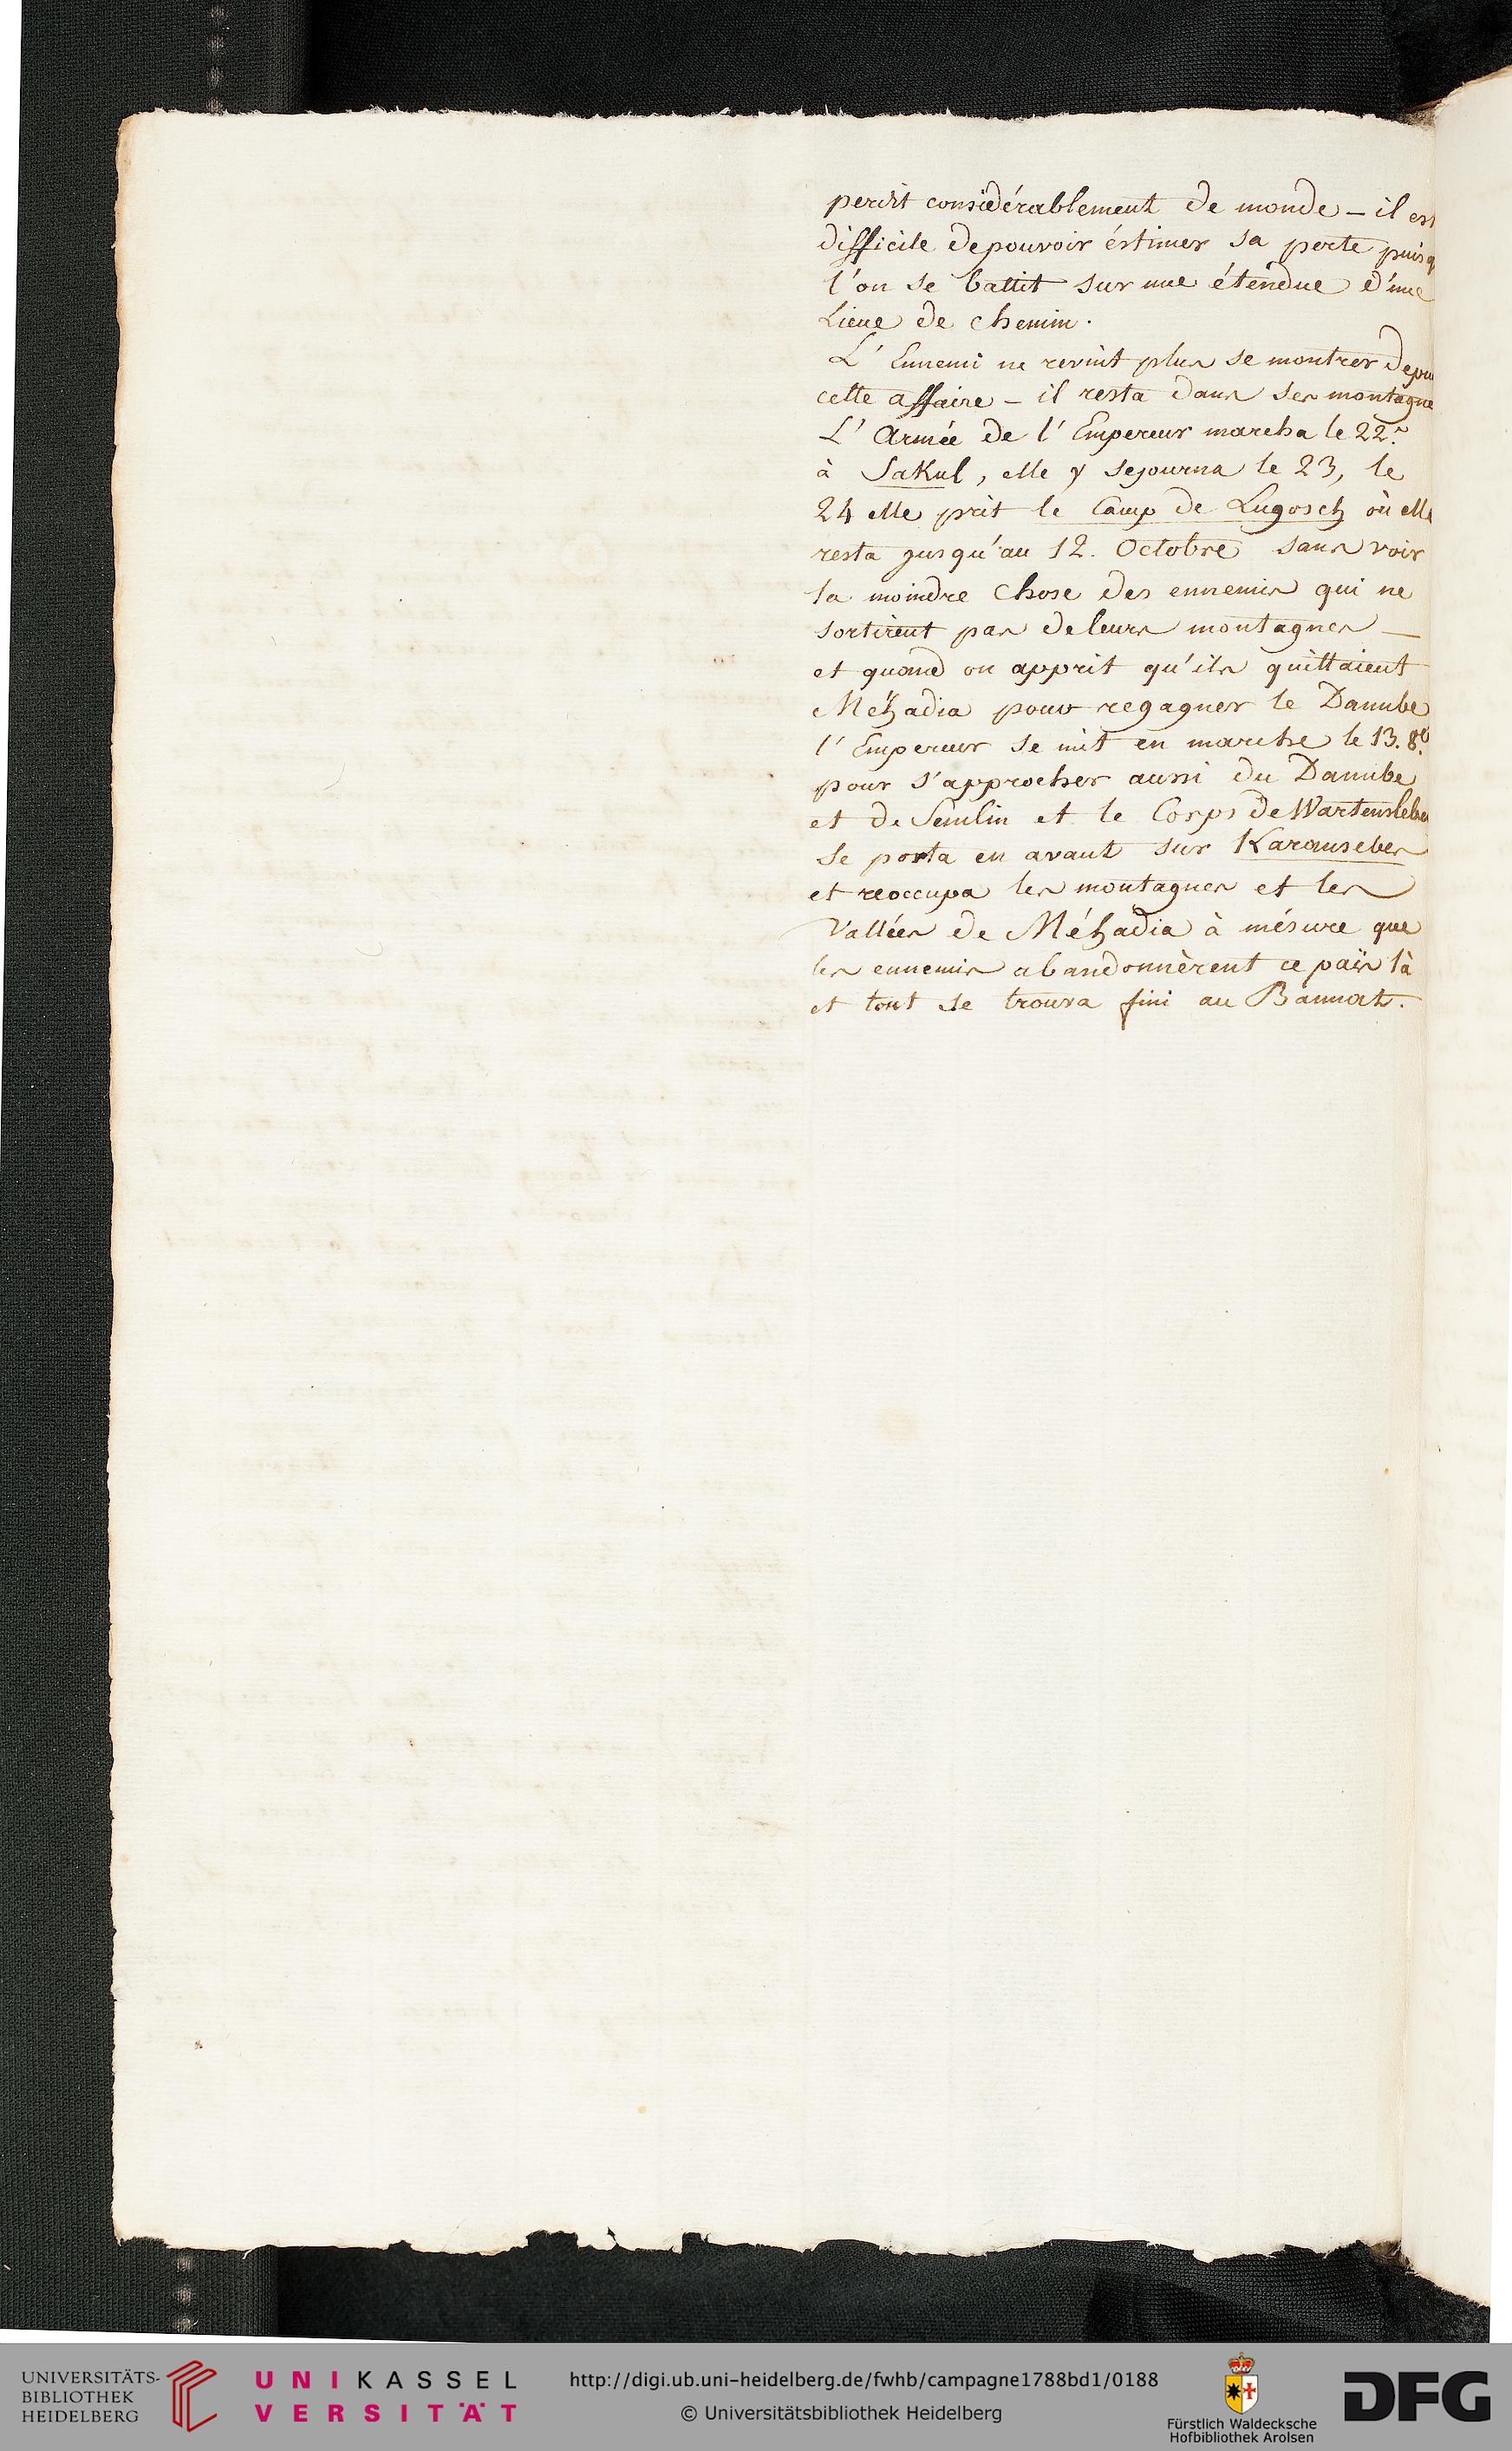 perdit considérablement de monde – il est
difficile de pouvoir éstimer sa perte puisq
l'on se battit sur une étendue d'une
Lieue de chemin.
L'Ennemi ne revint plus se montrer depu
cette affaire – il resta dans ses montagne
L'Armée de l'Empereur marcha le 22.
à Sakul, elle y sejourna le 23, le
24 elle prit le Camp de Lugosch où elle
resta jusqu'au 12. Octobre sans voir
la moindre chose des ennemis qui ne
sortirent pas de leurs montagnes —
et quand on apprit qu'ils quittaient
Méhadia pour regagner le Danube
l'Empereur se mit en marche le 13. 8.
pour s'approcher aussi du Danube
et de Semlin et le Corps de Wartensleben
se porta en avant sur Karansebes
et reoccupa les montagnes et les
Vallées de Méhadia à mésure que
les ennemis abandonnèrent ce païs là
et tout se trouva fini au Bannat.
UNIVERSITÄTS-
BIBLIOTHEK
HEIDELBERG
UNIKASSEL
VERSITÄT
http://digi.ub.uni-heidelberg.de/fwhb/campagne1788bd1/0188
© Universitätsbibliothek Heidelberg
Fürstlich Waldecksche
Hofbibliothek Arolsen
DFG